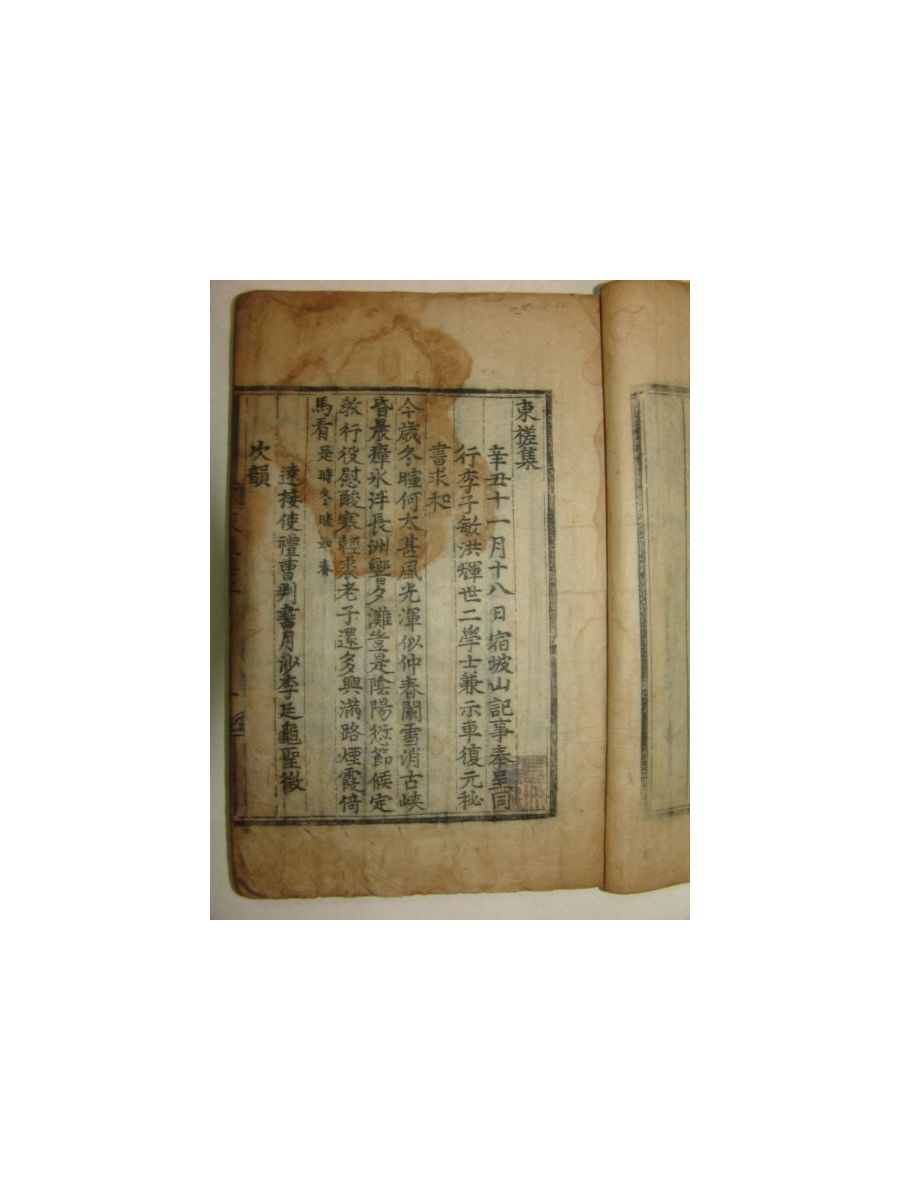 東槎集
辛丑十一月十八日宿坡山記事奉呈同
行李子敏洪輝世二學士兼示車復元秘
書求和
今歲冬暄何太甚風光渾似仲春闌雪消古峽
昏晨瘴氷泮長洲響夕灘豈是陰陽愆節候定
敎行役慰酸寒輕裘老子還多興滿路煙霞倚
馬看 是時冬暖如春
遠接使禮曹判書月沙李廷龜聖徵
次韻